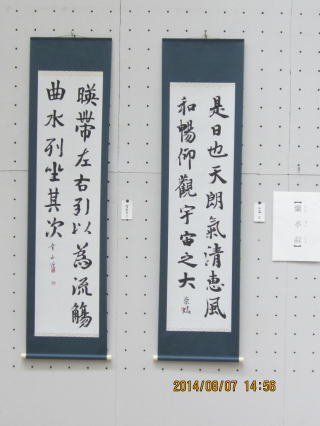 是日也天朗氣清惠風
和暢仰觀宇宙之大
暎帶左右引以為流觴
曲水列坐其次
2014/09/07 14:56